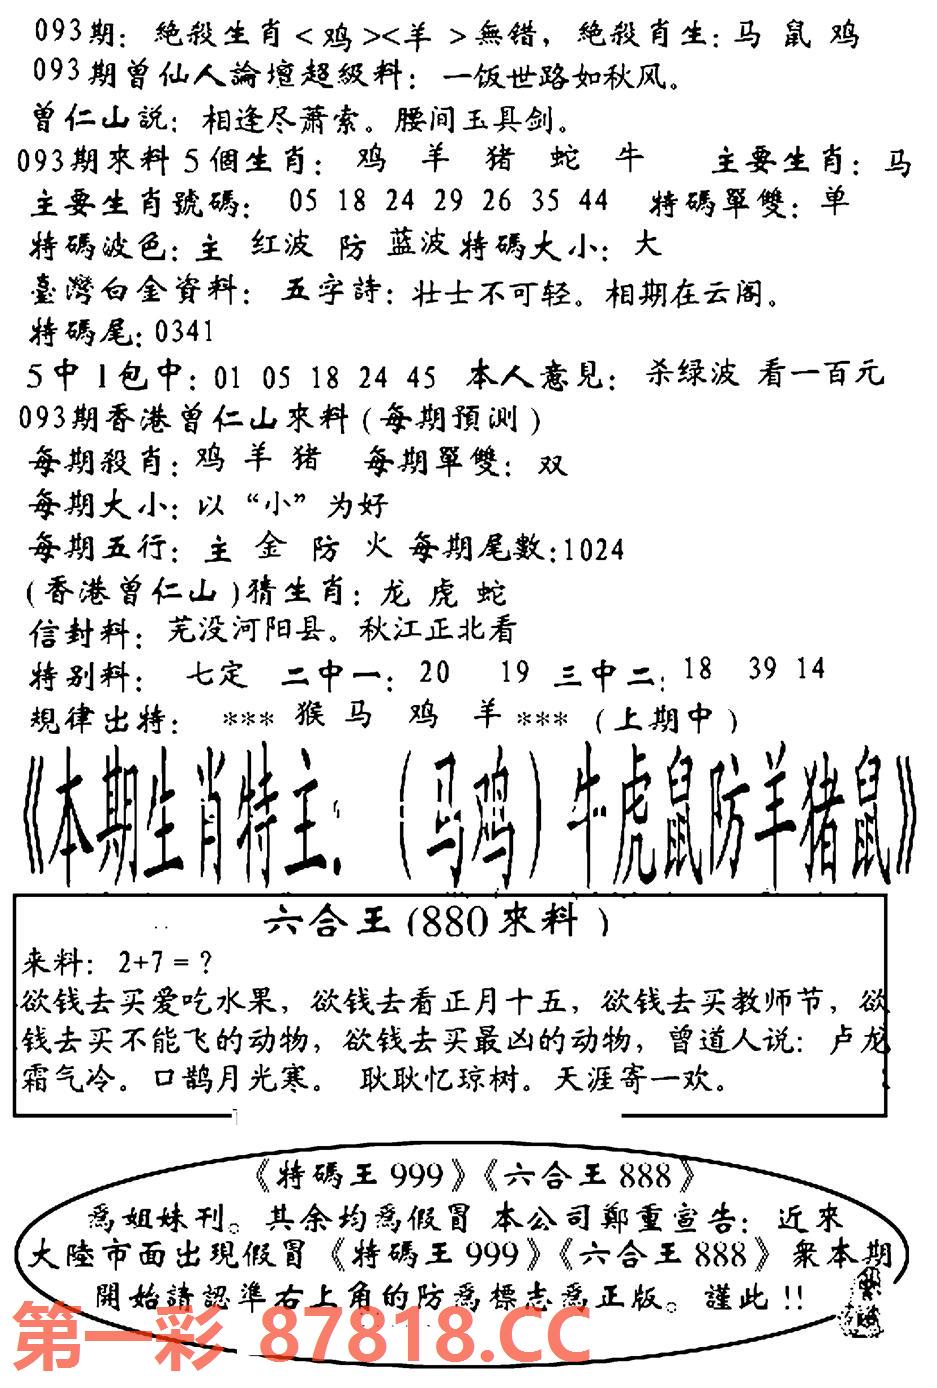 093期: 絶殺生肖<鸡><羊 >無错, 絶殺肖生: 马 鼠 鸡
093期曾仙人論壇超級料: 一饭世路如秋风。
曾仁山説: 相逢尽萧索。腰间玉具剑。
093期來料5個生肖: 鸡 羊 猪 蛇 牛 主要生肖: 马
主要生肖號碼: 05 18 24 29 26 35 44 特碼單雙: 单
特碼波色: 主 红波 防 蓝波 特碼大小: 大
臺灣白金資料: 五字詩: 壮士不可轻。相期在云阁。
特碼尾: 0341
5中1包中: 01 05 18 24 45 本人意見: 杀绿波 看一百元
093期香港曾仁山來料(每期預測)
每期殺肖: 鸡 羊 猪 每期單雙: 双
每期大小: 以“小”为好
每期五行: 主 金 防 火 每期尾數:1024
(香港曾仁山)猜生肖: 龙 虎 蛇
信封料: 芜没河阳县。秋江正北看
特别料: 七定 二中一: 20 19 三中二: 18 39 14
規律出特: *** 猴 马 鸡 羊 *** (上期中)
《本期生肖特主: (马鸡)牛虎鼠防羊猪鼠》
六合王(880來料)
来料: 2+7=?
欲钱去买爱吃水果, 欲钱去看正月十五, 欲钱去买教师节, 欲
钱去买不能飞的动物, 欲钱去买最凶的动物, 曾道人说: 卢龙
霜气冷。口鹊月光寒。 耿耿忆琼树。天涯寄一欢。
《特碼王999》《六合王888》
爲姐妹刊。其余均爲假冒 本公司鄭重宣告: 近來
大陸市面出現假冒《特碼王999》《六合王888》衆本期
開始請認準右上角的防爲標志爲正版。謹此!!
第一彩 87818.CC